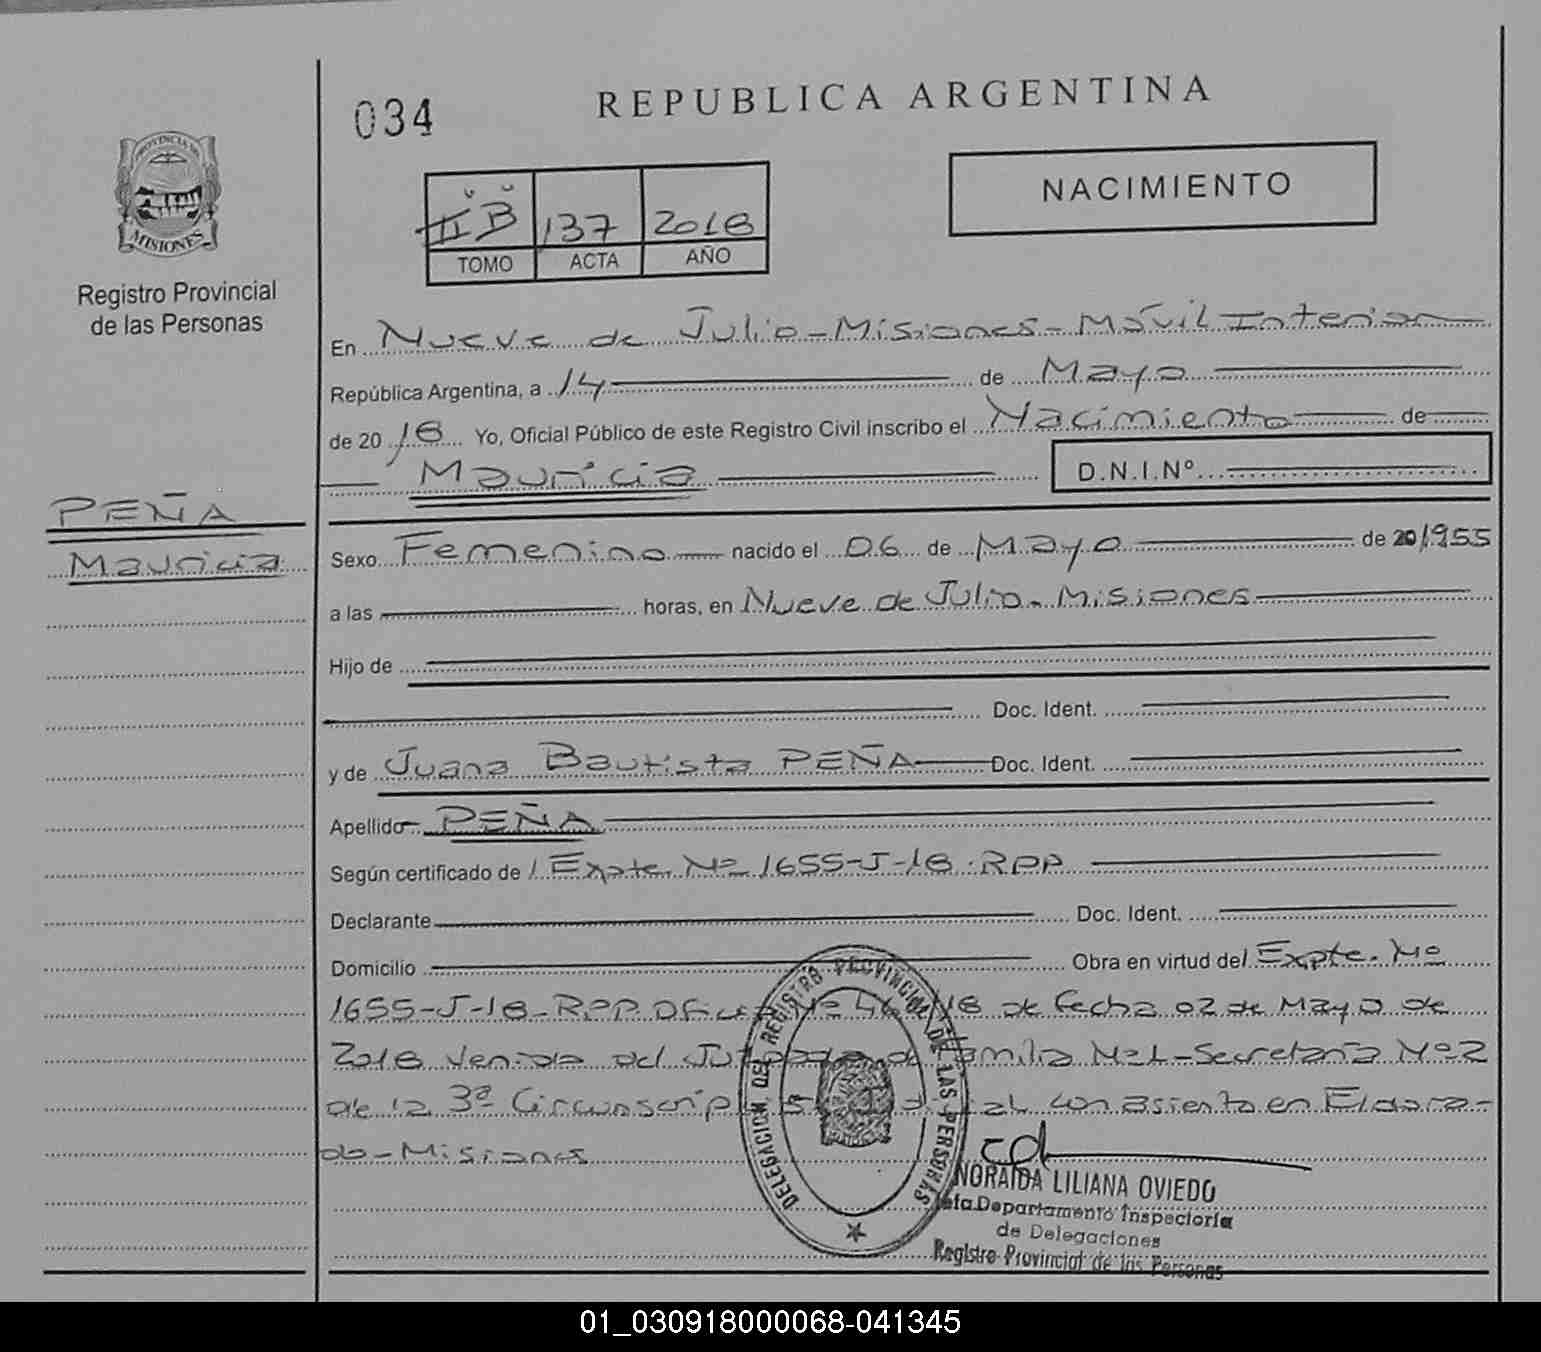 034
REPUBLICA ARGENTINA
PROVINCIA DE
MISIONES
Registro Provincial
de las Personas
II B 137 2018
TOMO ACTA AÑO
NACIMIENTO
En Nueve de Julio - Misiones - Móvil Interior
República Argentina, a 14 de Mayo
de 20 18 Yo, Oficial Público de este Registro Civil inscribo el Nacimiento de
Mauricia D.N.I.Nº
PEÑA
Mauricia
Sexo Femenino nacido el 06 de Mayo de 20 1955
a las horas, en Nueve de Julio - Misiones
Hijo de
Doc. Ident.
y de Juana Bautista PEÑA Doc. Ident.
Apellido PEÑA
Según certificado de l Expte. Nº 1655-J-18-RPP
Declarante Doc. Ident.
Domicilio Obra en virtud del Expte. Nº
1655-J-18-RPP. Nº 18 de fecha 02 de Mayo de
2018 Venida del Juzgado de Familia Nº1-Secretaría Nº2
de la 3ª Circunscrip Judicial con asiento en Eldora-
do - Misiones
DELEGACION DEL REGISTRO PROVINCIAL DE LAS PERSONAS
NORAIDA LILIANA OVIEDO
Jefa Departamento Inspectoría
de Delegaciones
Registro Provincial de las Personas
01_030918000068-041345